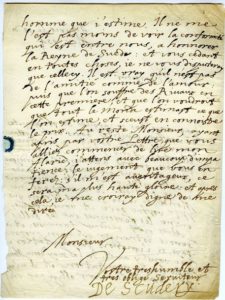 homme que i'estime. Il ne me
l'est pas moins de voir la conformité
qui est entre nous, a honnorer
la Reyne de Suède: et vous cedant
en toutes choses, ie ne vous dispute
que celle cy. Il est vray qu'il n'est pas
de l'amitié comme de l'amour
puis que l'on souffre des Rivaux en
cette premiere, et que l'on voudroit
que tout le monde estimast ce que
l'on estime, et peust en connoistre
le prix. Au reste Monsieur, ayant
sceu par vostre Lettre, que vous
alliez commencer de lire mon
Alaric, i'attens avec beaucoup d'impa
tience, le iugement que vous en
ferez: s'il m'est avantageux, ce
sera ma plus haute gloire, et apres
cela, ie me croiray digne de me
dire
Monsieur
Vostre treshumble et
tres obligé serviteur
De Scudery